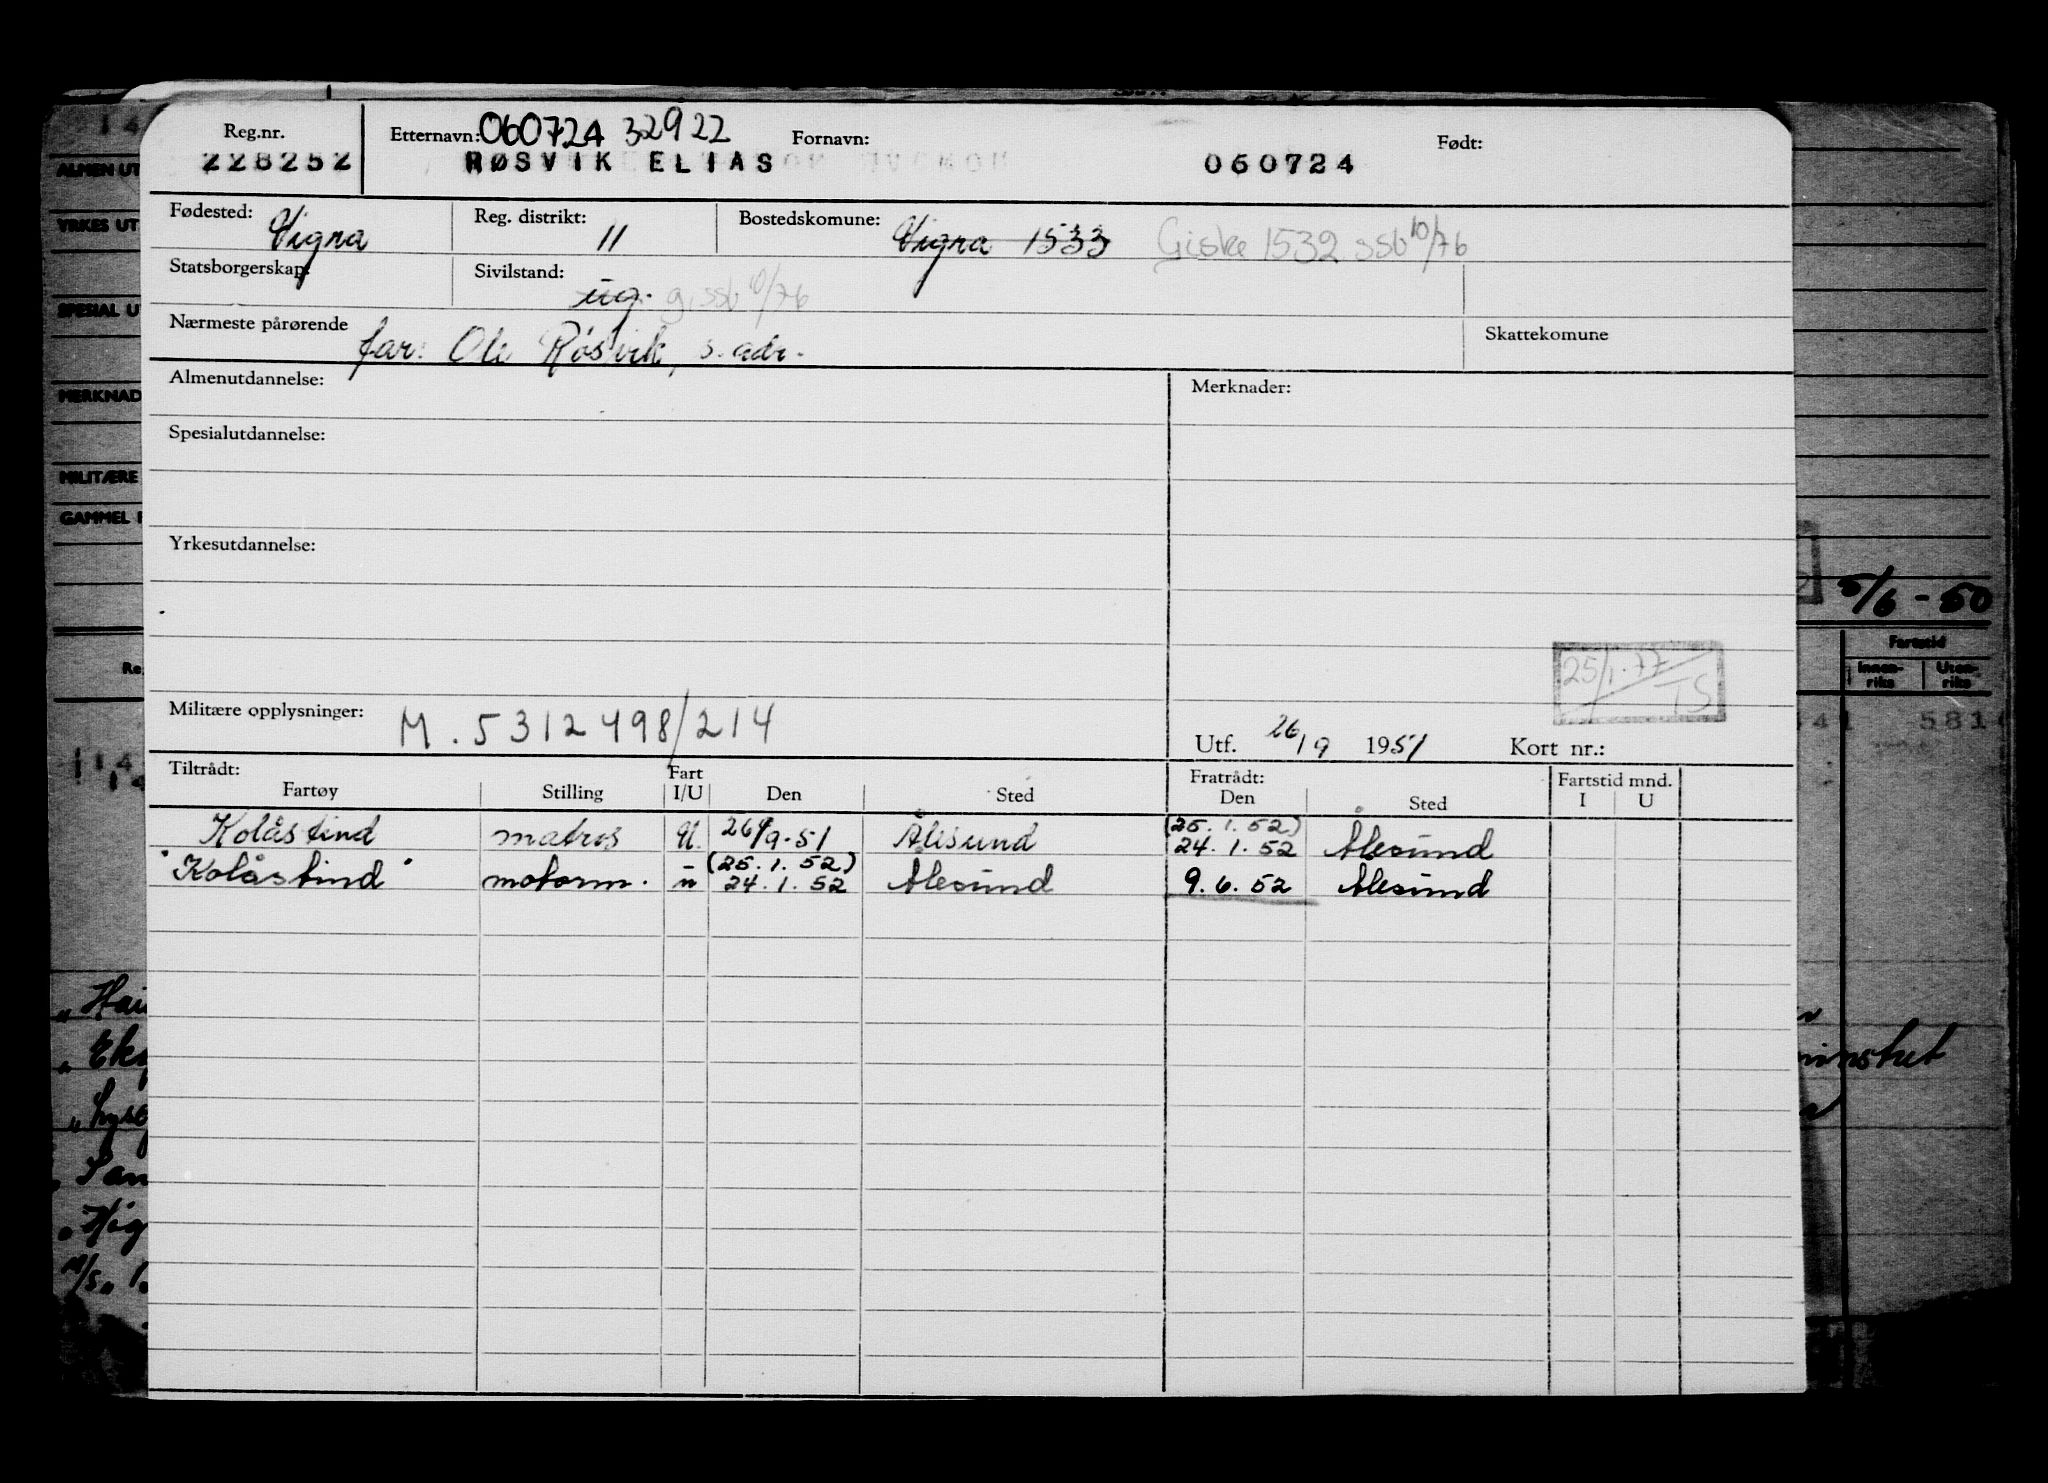 Reg.nr. Etternavn: 060724 32922 Fornavn: Født:
228252 RØSVIK ELIAS 060724
Fødested: Vigra Reg. distrikt: 11 Bostedskomune: Vigra 1533 Giske 1532 ssb 10/76
Statsborgerskap: Sivilstand: ug. g. ssb 10/76
Nærmeste pårørende far: Ole Røsvik, s. adr. Skattekomune
Almenutdannelse: Merknader:
Spesialutdannelse:
Yrkesutdannelse:
25/1.77 TS
Militære opplysninger: M. 5312498/214
Utf. 26/9 1951 Kort nr.:
Tiltrådt: Fart Fratrådt: Fartstid mnd.
Fartøy Stilling I/U Den Sted Den Sted I U
Kolåstind matros U. 26/9-51 Ålesund (25.1.52) 24.1.52 Ålesund
"Kolåstind" motorm. u (25.1.52) 24.1.52 Ålesund 9.6.52 Ålesund
ALMEN UT
YRKES UT
SPESIAL U
MERKNAD
MILITÆRE
GAMMEL
5/6-50
Fartstid
Innen-riks Uten-riks